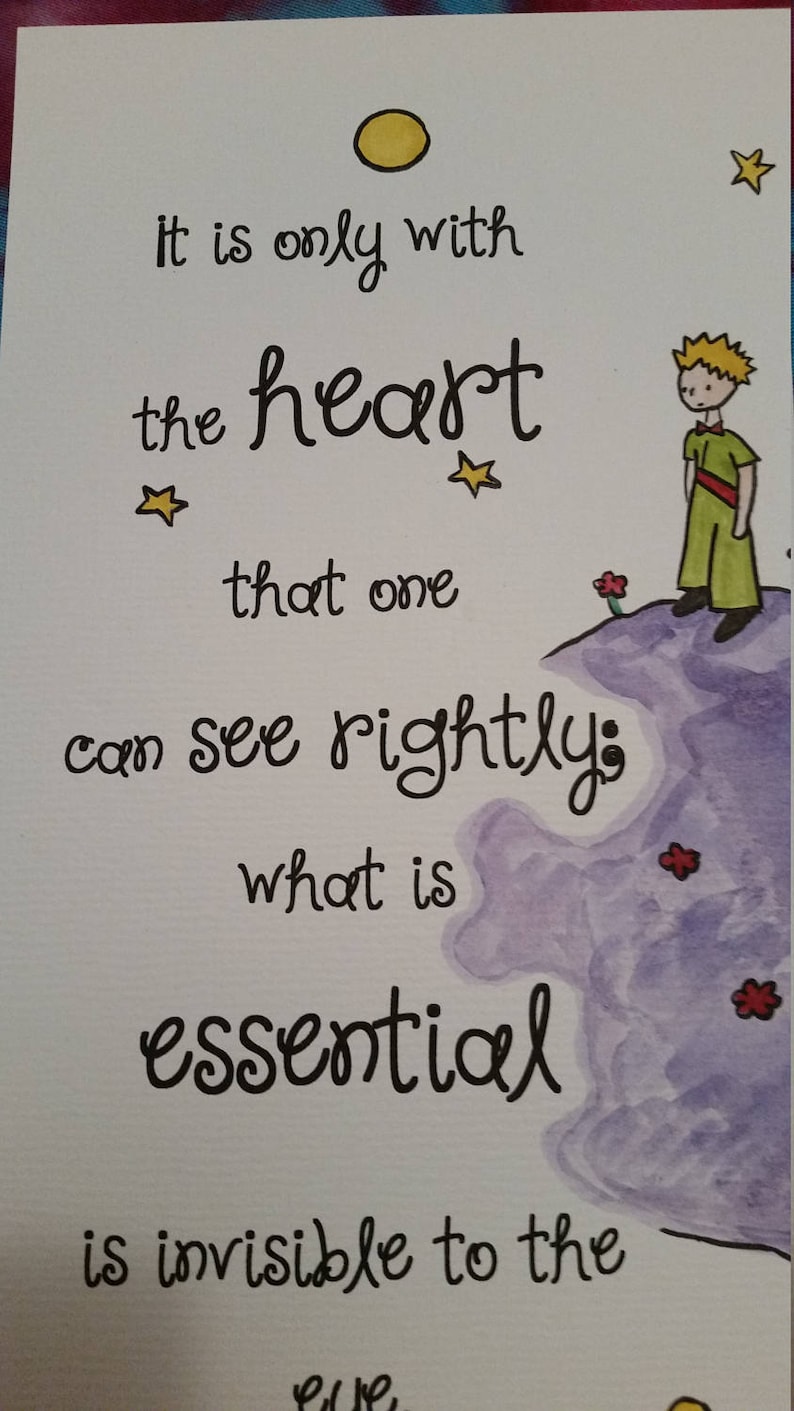 it is only with
the heart
that one
can see rightly;
what is
essential
is invisible to the
eye.